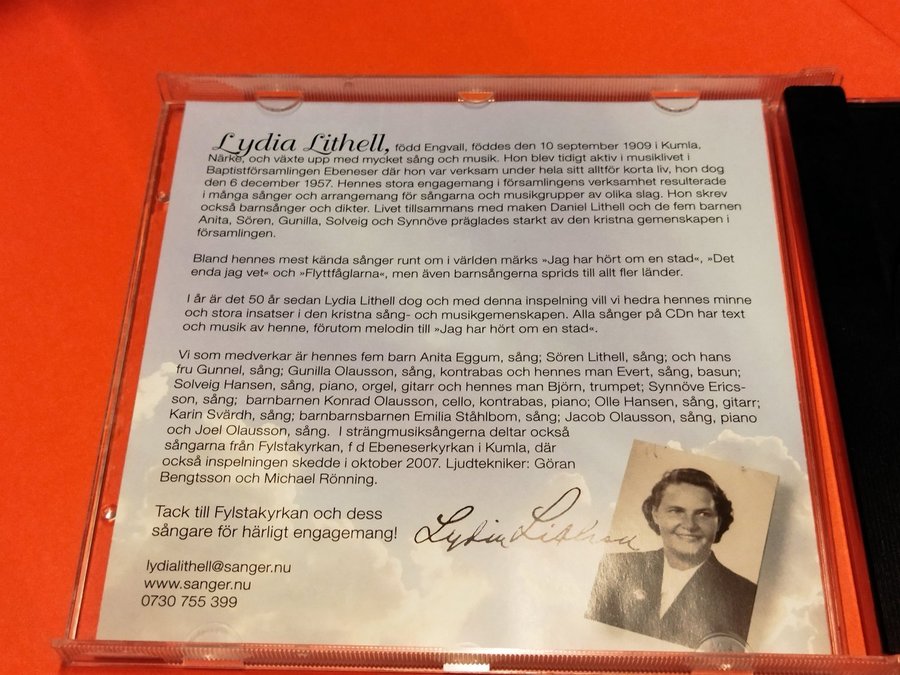 Lydia Lithell, född Engvall, föddes den 10 september 1909 i Kumla,
Närke, och växte upp med mycket sång och musik. Hon blev tidigt aktiv i musiklivet i
Baptistförsamlingen Ebeneser där hon var verksam under hela sitt alltför korta liv, hon dog
den 6 december 1957. Hennes stora engagemang i församlingens verksamhet resulterade
i många sånger och arrangemang för sångarna och musikgrupper av olika slag. Hon skrev
också barnsånger och dikter. Livet tillsammans med maken Daniel Lithell och de fem barnen
Anita, Sören, Gunilla, Solveig och Synnöve präglades starkt av den kristna gemenskapen i
församlingen.
Bland hennes mest kända sånger runt om i världen märks »Jag har hört om en stad«, »Det
enda jag vet« och »Flyttfåglarna«, men även barnsångerna sprids till allt fler länder.
I år är det 50 år sedan Lydia Lithell dog och med denna inspelning vill vi hedra hennes minne
och stora insatser i den kristna sång- och musikgemenskapen. Alla sånger på CDn har text
och musik av henne, förutom melodin till »Jag har hört om en stad«.
Vi som medverkar är hennes fem barn Anita Eggum, sång; Sören Lithell, sång; och hans
fru Gunnel, sång; Gunilla Olausson, sång, kontrabas och hennes man Evert, sång, basun;
Solveig Hansen, sång, piano, orgel, gitarr och hennes man Björn, trumpet; Synnöve Erics-
son, sång; barnbarnen Konrad Olausson, cello, kontrabas, piano; Olle Hansen, sång, gitarr;
Karin Svärdh, sång; barnbarnsbarnen Emilia Ståhlbom, sång; Jacob Olausson, sång, piano
och Joel Olausson, sång. I strängmusiksångerna deltar också
sångarna från Fylstakyrkan, f d Ebeneserkyrkan i Kumla, där
också inspelningen skedde i oktober 2007. Ljudtekniker: Göran
Bengtsson och Michael Rönning.
Tack till Fylstakyrkan och dess
sångare för härligt engagemang!
Lydia Lithell
lydialithell@sanger.nu
www.sanger.nu
0730 755 399